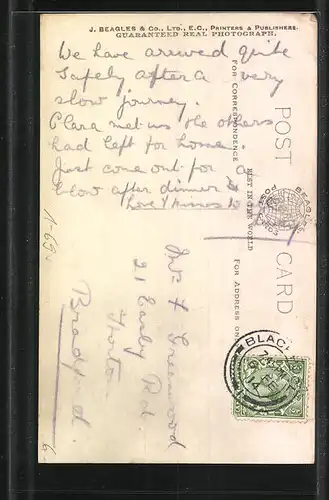 J. BEAGLES & Co., LTD., E.C., PRINTERS & PUBLISHERS.
GUARANTEED REAL PHOTOGRAPH.
We have arrived quite
Safely after a very
slow journey.
Clara met us the others
had left for home.
Just come out for a
blow after dinner
Love & kisses
POST CARD
FOR CORRESPONDENCE
BEST IN THE WORLD
FOR ADDRESS ON
BEAGLES
POST
Mrs Greenwood
21 Easby Rd.
Horton
Bradford.
BLAC
14